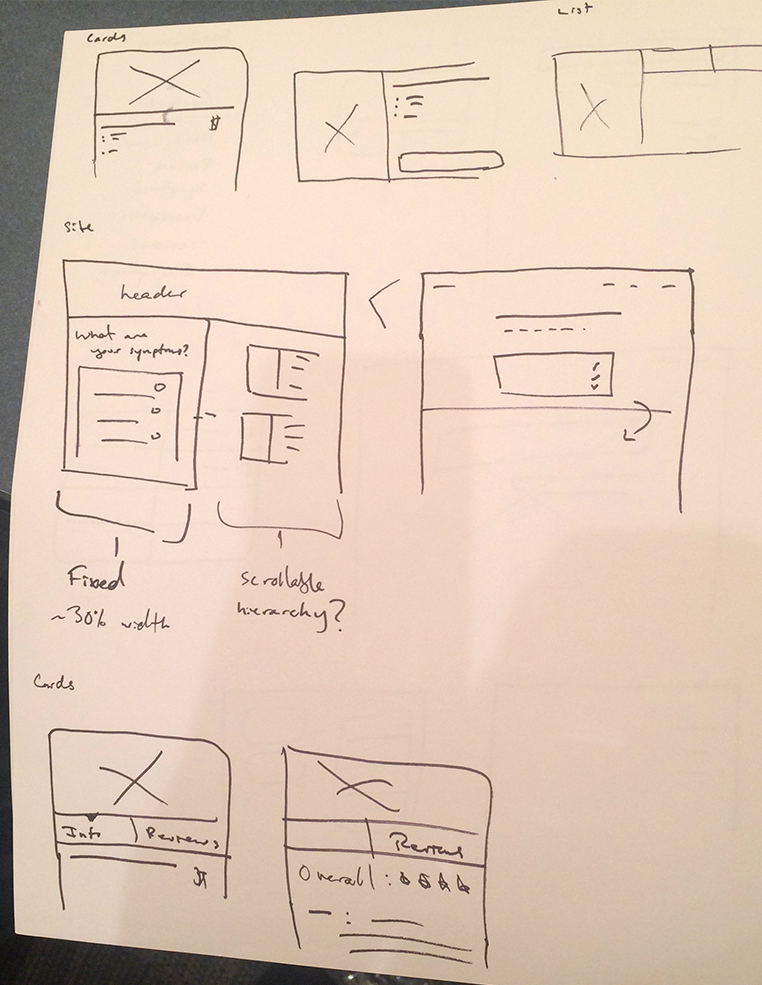 Cards
List
$
Site
header
What are
your symptoms?
Fixed
~30% width
Scrollable
hierarchy?
Cards
Info
Reviews
$
Reviews
Overall :